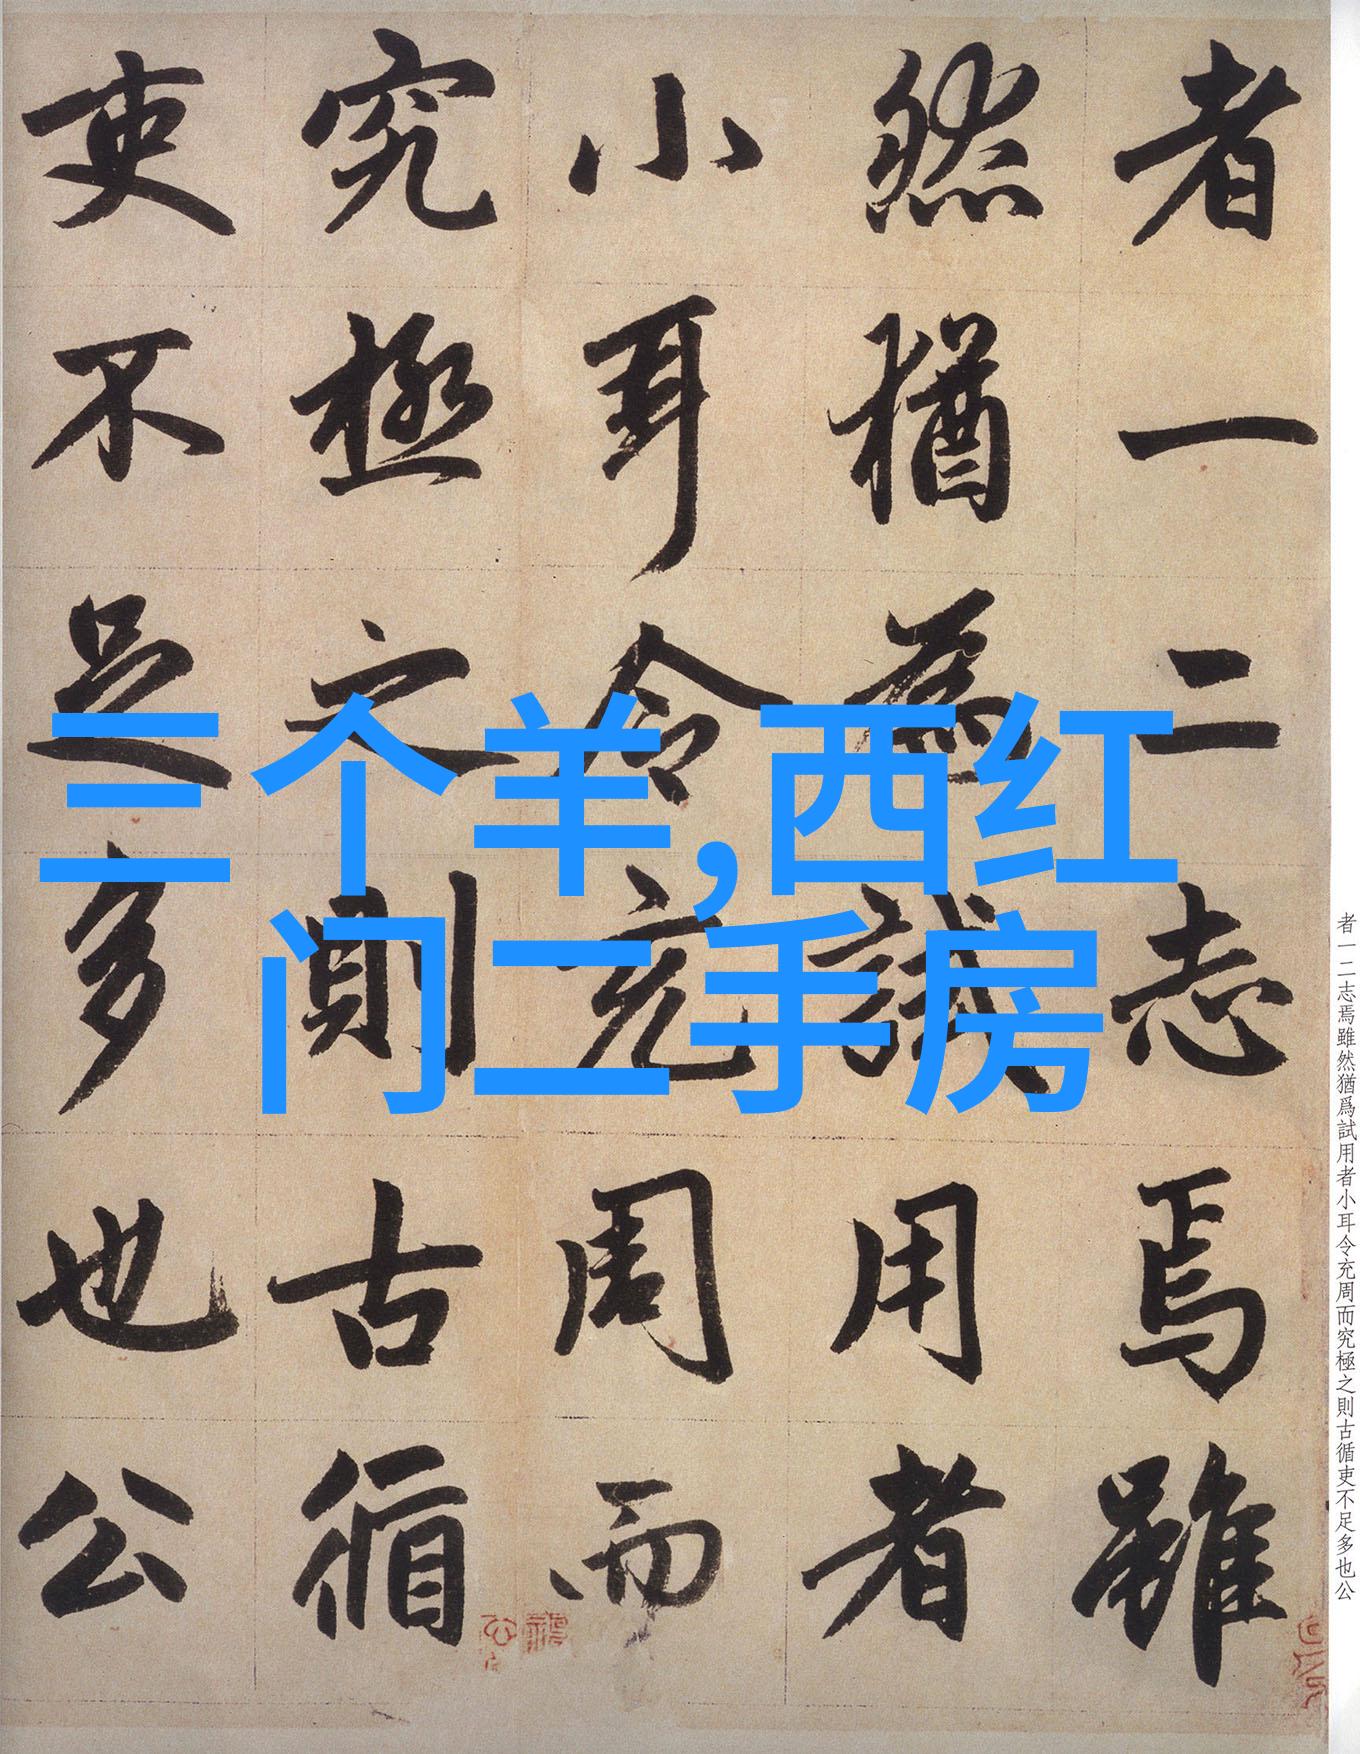 者一二志焉雖
然猶為試用者
小耳令充周而
究極之則古循
吏不足多也公
三个羊,西红
门二手房
者一二志焉雖然猶爲試用者小耳令充周而究極之則古循吏不足多也公